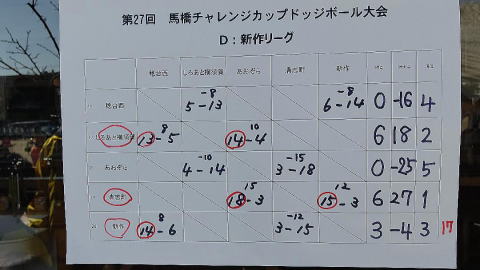 第27回 馬橋チャレンジカップドッジボール大会
D：新作リーグ
稔台西 しろあと横須賀 あおぞら 貴志町 新作
稔台西 -8 5-13 -8 6-14 0 -16 4
しろあと横須賀 8 13-5 10 14-4 6 18 2
あおぞら -10 4-14 -15 3-18 0 -25 5
貴志町 15 18-3 12 15-3 6 27 1
新作 8 14-6 -12 3-15 3 -4 3 17